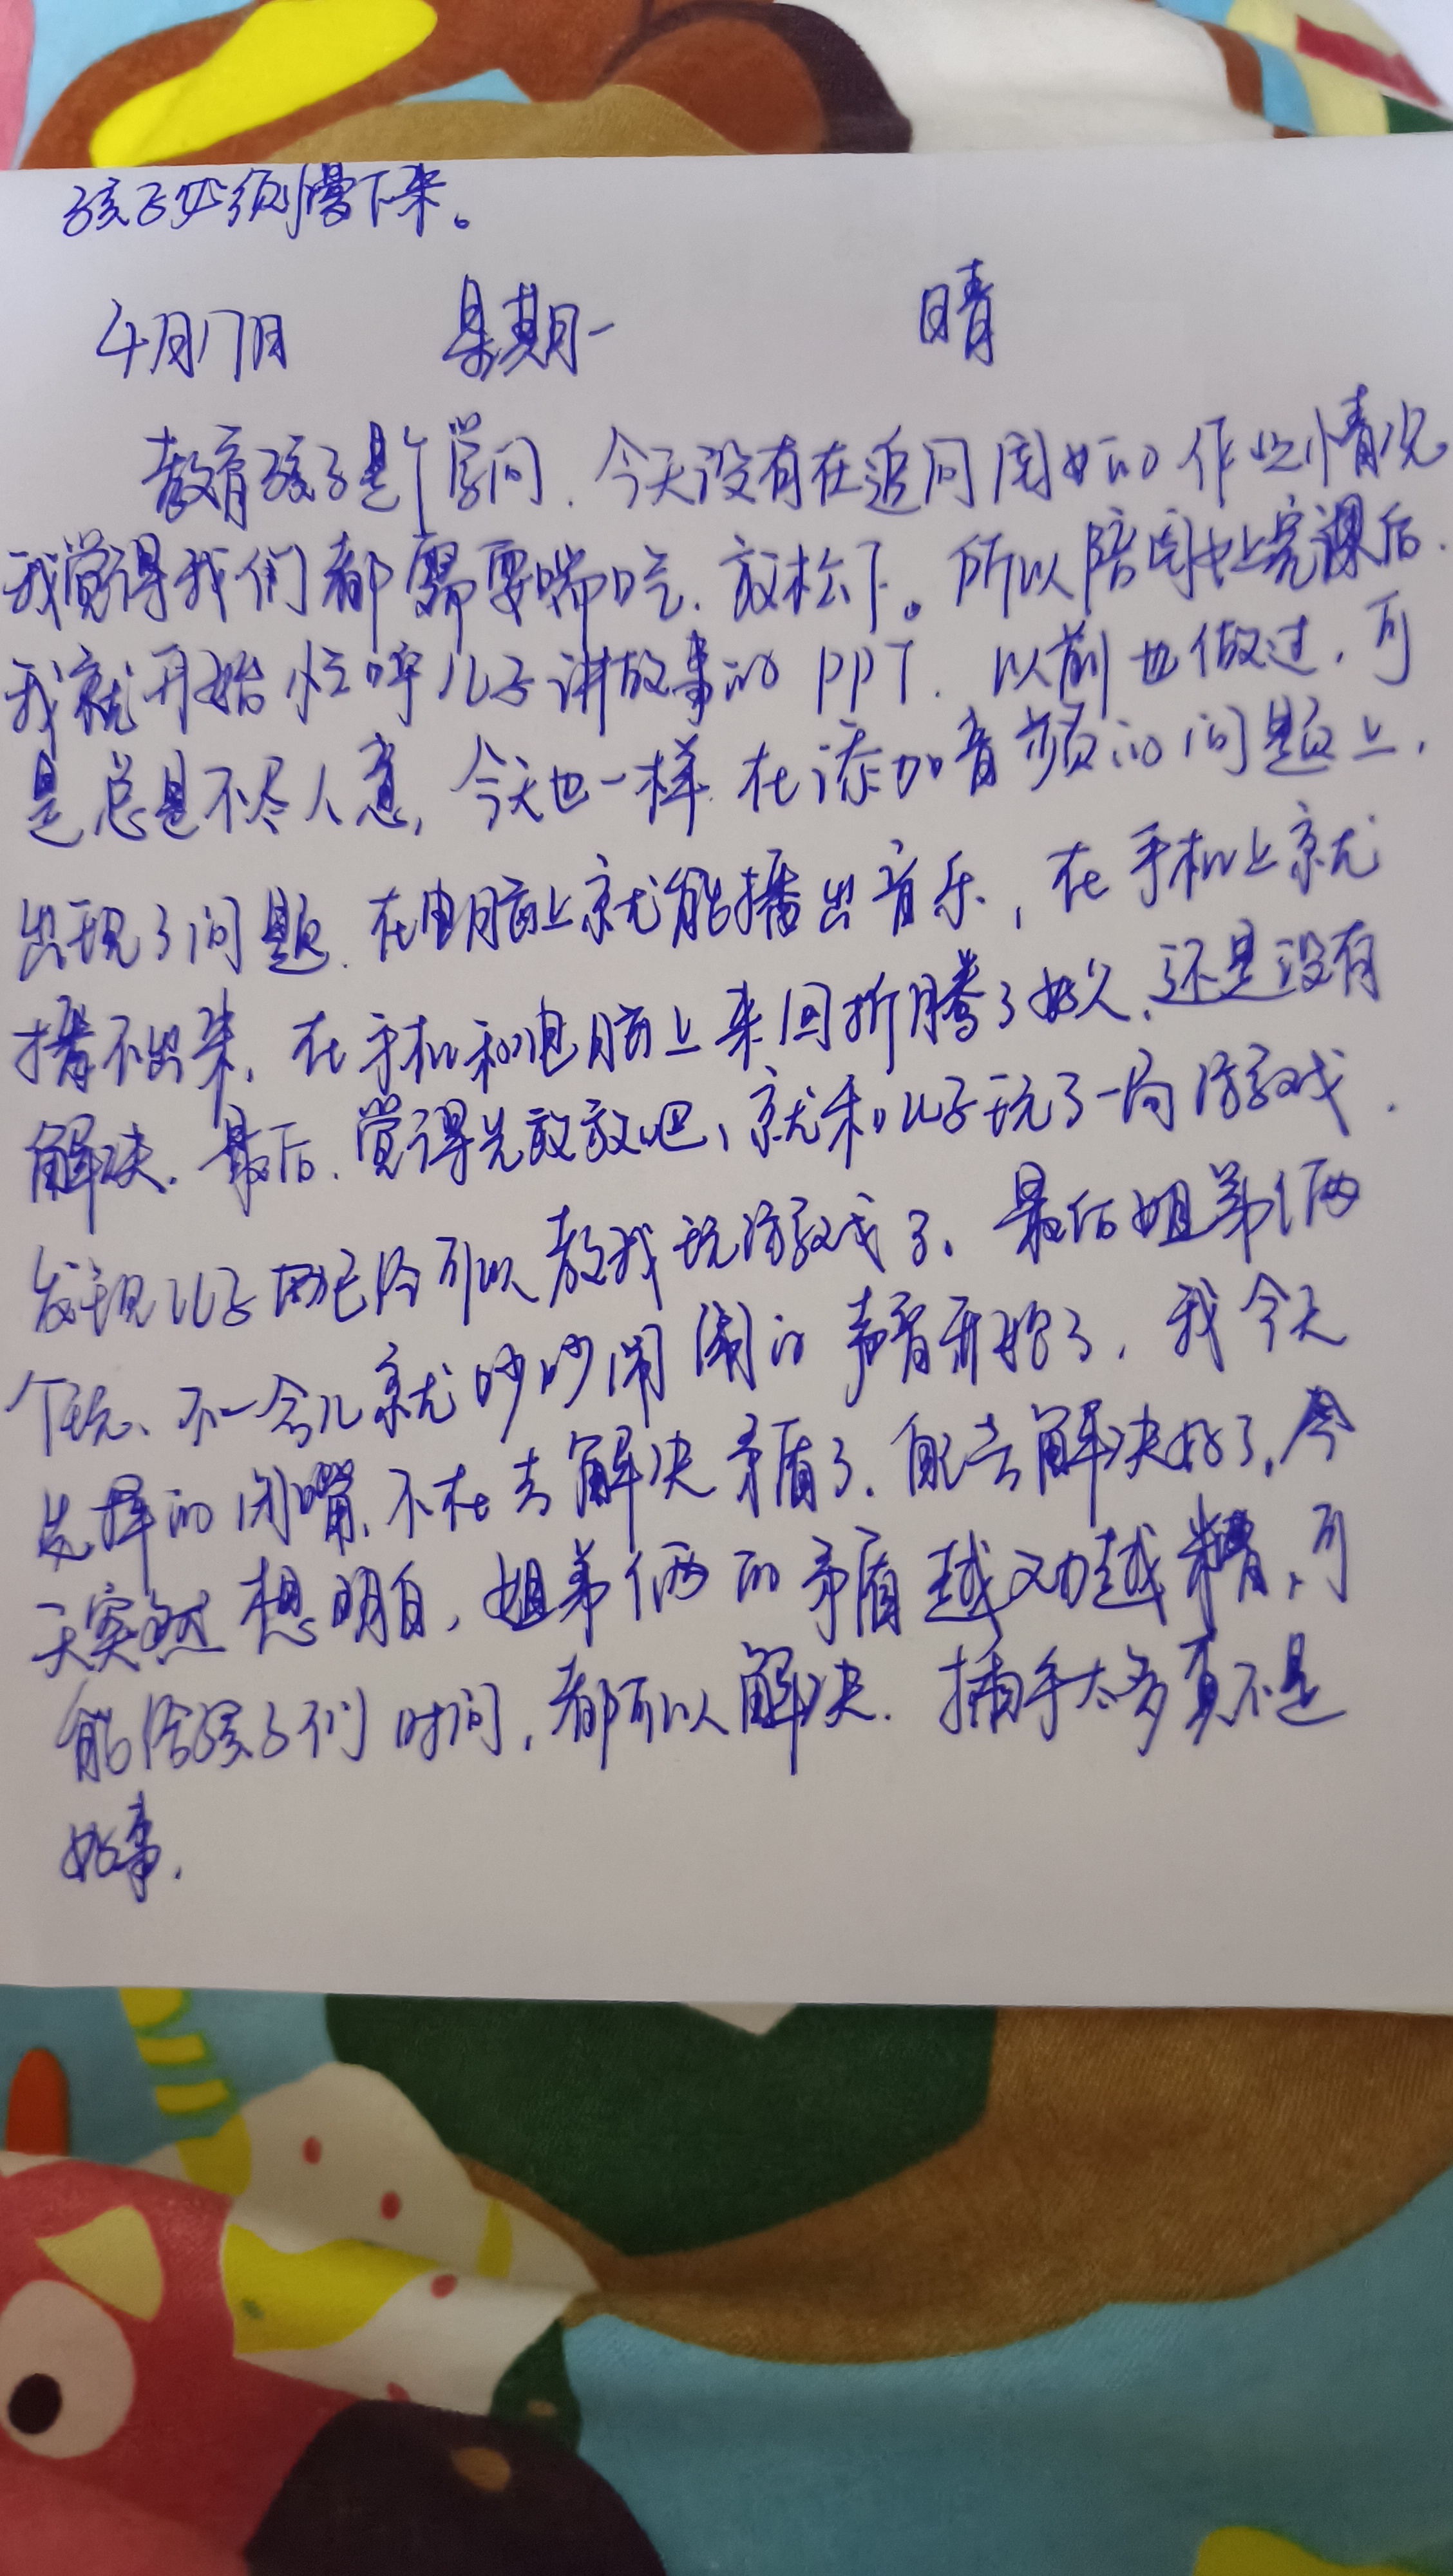 孩子必须慢下来。
4月17日 星期一 晴
教育孩子是个学问.今天没有在追问周女的作业情况
我觉得我们都需要喘吃.放松下。所以陪周女上完课后.
我就开始忙呼儿子讲故事的PPT.以前也做过,可
是总是不尽人意,今天也一样.在添加音频的问题上,
出现了问题.在电脑上就能播出音乐,在手机上就
播不出来.在手机和电脑上来回折腾了好久.还是没有
解决.最后.觉得先放放吧,就和儿子玩了一局游戏.
发现儿子已经可以教我玩游戏了.最后姐弟俩
个玩、不一会儿就吵吵闹闹的声音开始了.我今天
选择的闭嘴、不在去解决矛盾了.自己去解决好了,今
天突然想明白,姐弟俩的矛盾越劝越糟,可
能给孩子们时间,都可以解决.插手太多真不是
好事.